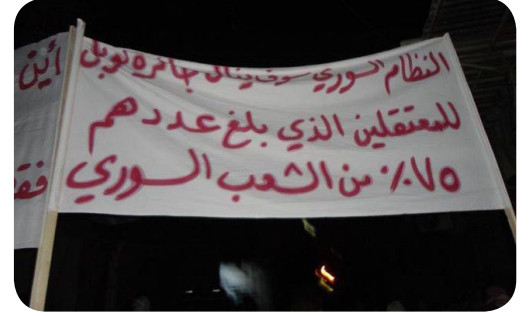 النظام السوري سوف ينال جائزة نوبل
للمعتقلين الذي بلغ عددهم
٧٥٪ من الشعب السوري
أين